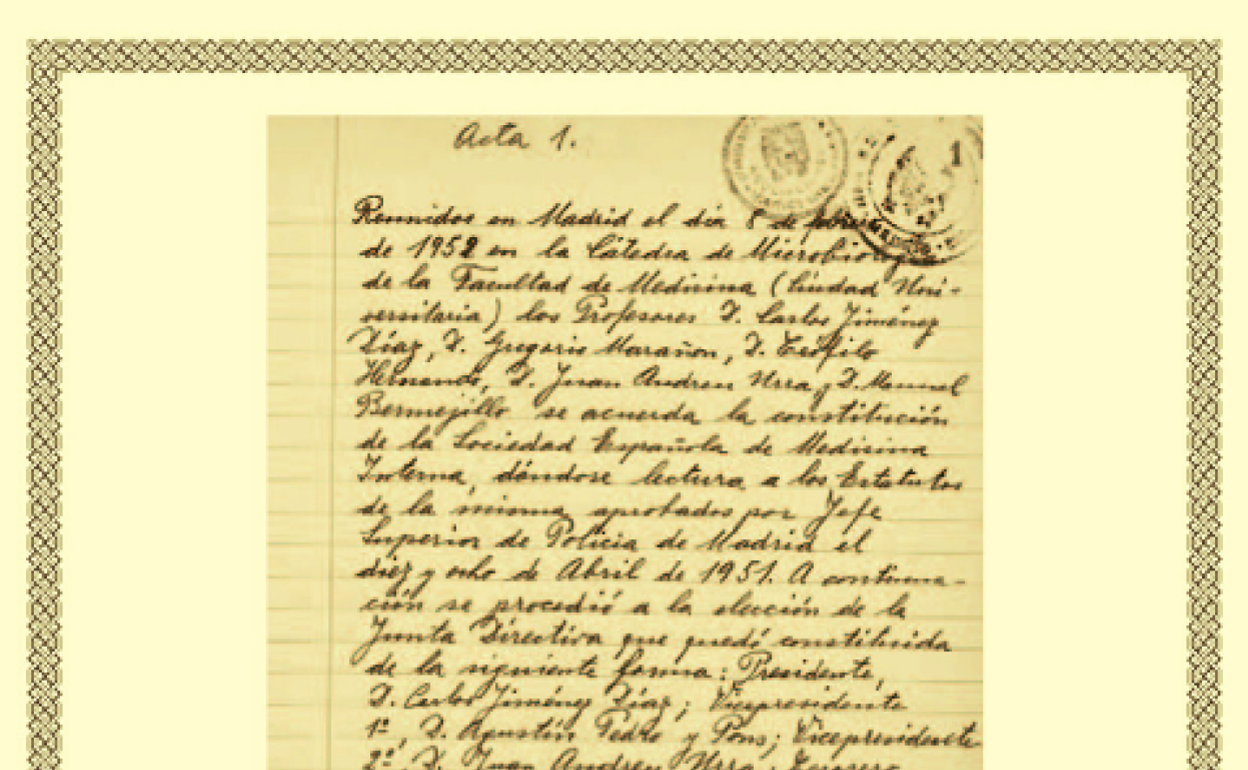 Acta 1.
1
Reunidos en Madrid el día 8 de febrero
de 1952 en la Cátedra de Microbiología
de la Facultad de Medicina (Ciudad Uni-
versitaria) los Profesores D. Carlos Jiménez
Díaz, D. Gregorio Marañon, D. Teófilo
Hernando, D. Juan Andreu Urra y D. Manuel
Bermejillo se acuerda la constitución
de la Sociedad Española de Medicina
Interna, dándose lectura a los Estatutos
de la misma aprobados por Jefe
Superior de Policia de Madrid el
diez y ocho de Abril de 1951. A continua-
ción se procedió a la elección de la
Junta Directiva que quedó constituida
de la siguiente forma: Presidente,
D. Carlos Jiménez Díaz; Vicepresidente
1º, D. Agustín Pedro y Pons; Vicepresidente
2º, D. Juan Andreu Urra; Tesorero